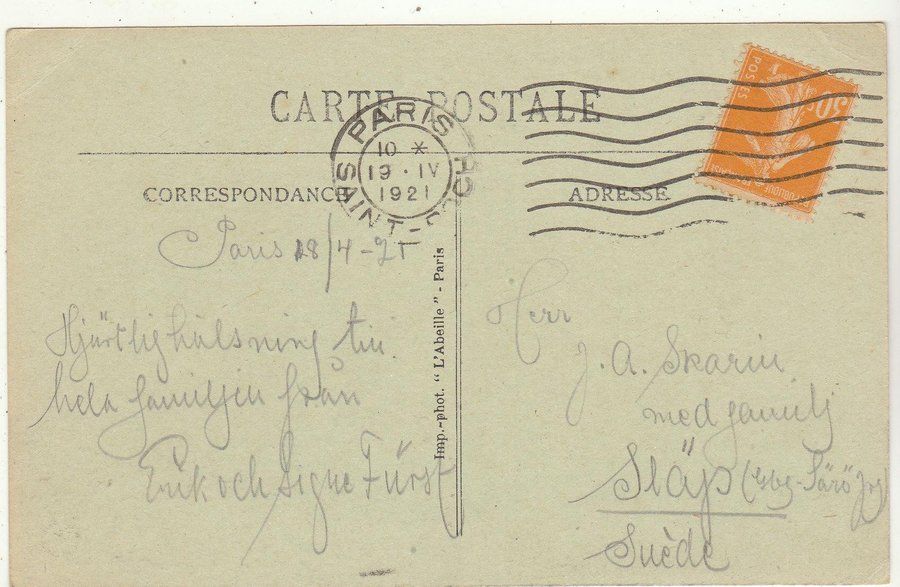 CARTE POSTALE
PARIS
10 *
19 · IV
1921
SAINT-ROCH
30c
POSTES
REPUBLIQUE FRANÇAISE
CORRESPONDANCE
ADRESSE
Paris 18/4-21
Hjärtlig hälsning till
hela familjen från
Erik och Signe Fürst
Imp.-phot. "L'Abeille" - Paris
Herr
J. A. Skarin
med familj
Släp (Gbg-Särö Jrg)
Suède